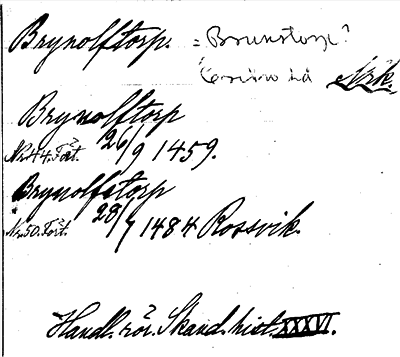 Brynolftorp. = Brunstorp?
Nrk.
Brynolftorp
Nr 44. Fört. 26/9 1459.
Brynolfstorp
Nr. 50. Fört. 28/7 1484 Rossvik.
Handl. rör. Skand. hist. XXXVI.